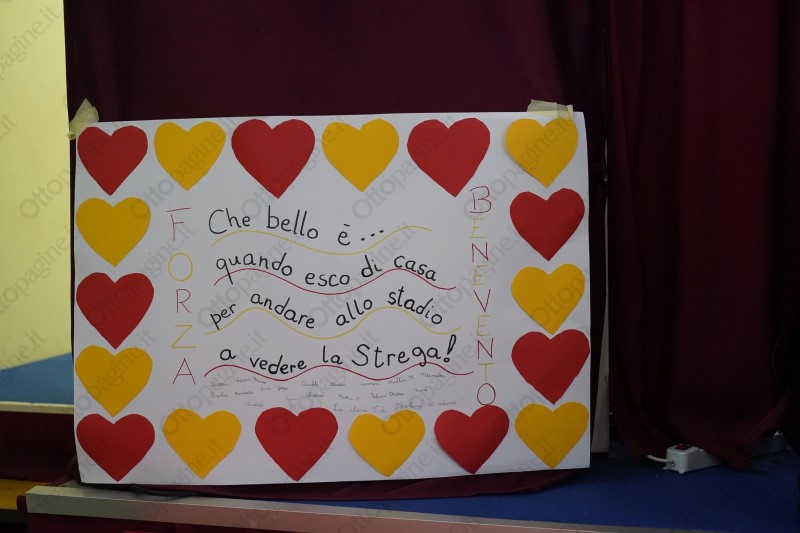 FORZA
Che bello è...
quando esco di casa
per andare allo stadio
a vedere la Strega!
BENEVENTO
Ottopagine.it